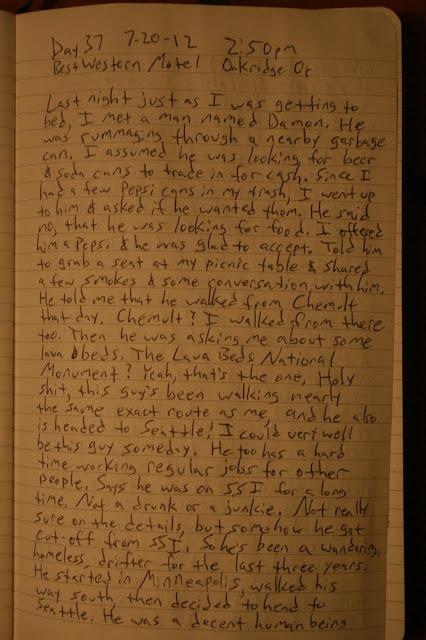 Day 37 7-20-12 2:50pm
Best Western Motel Oakridge Or
Last night just as I was getting to
bed, I met a man named Damon. He
was rummaging through a nearby garbage
can. I assumed he was looking for beer
& soda cans to trade in for cash. Since I
had a few Pepsi cans in my trash, I went up
to him & asked if he wanted them. He said
no, that he was looking for food. I offered
him a Pepsi & he was glad to accept. Told him
to grab a seat at my picnic table & shared
a few smokes & some conversation with him.
He told me that he walked from Chemult
that day. Chemult? I walked from there
too. Then he was asking me about some
lava beds. The Lava Beds National
Monument? Yeah, that's the one. Holy
shit, this guy's been walking nearly
the same exact route as me, and he also
is headed to Seattle! I could very well
be this guy someday. He too has a hard
time working regular jobs for other
people. Says he was on SSI for a long
time. Not a drunk or a junkie. Not really
sure on the details, but somehow he got
cut-off from SSI. So he's been a wandering,
homeless, drifter for the last three years.
He started in Minneapolis, walked his
way south, then decided to head to
Seattle. He was a decent human being